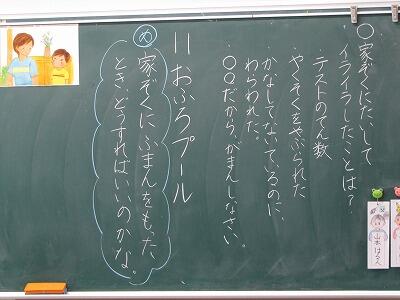 ○家ぞくにたいして
イライラしたことは？
・テストのてん数
・やくそくをやぶられた
・かなしてないているのに、
わらわれた。
・○○だから、がまんしなさい。
11 おふろプール
め 家ぞくにふまんをもった
とき、どうすればいいのかな。
山本はるへ